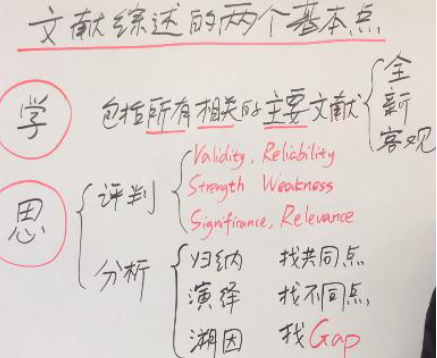 文献综述的两个基本点
学 包括所有相关的主要文献 全
新
客观
思 评判 Validity, Reliability
Strength Weakness
Significance, Relevance
分析 归纳 找共同点
演绎 找不同点
溯因 找Gap